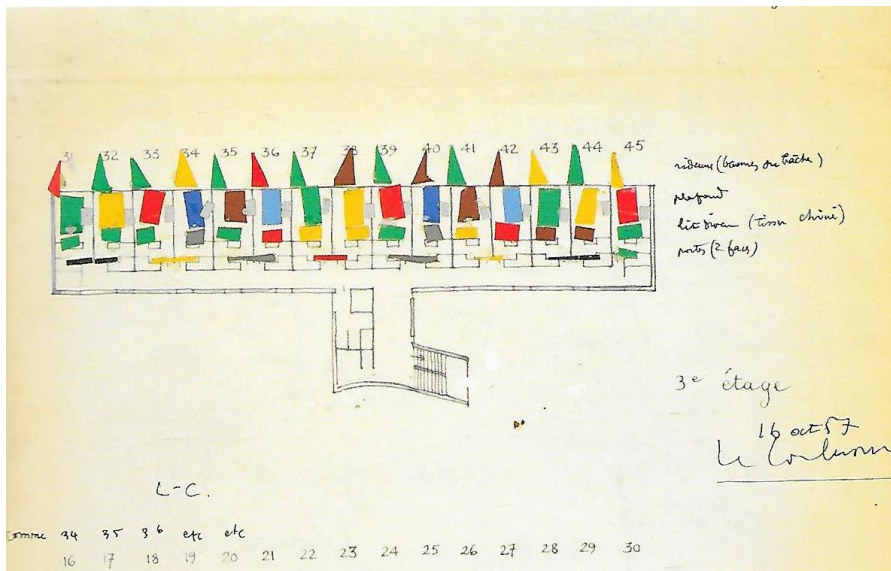 31 32 33 34 35 36 37 38 39 40 41 42 43 44 45
rideaux (bannes ou bâche)
plafond
lit divan (tissu chiné)
portes (2 faces)
3e étage
16 oct 57
Le Corbusier
L-C.
comme 34 35 36 etc etc
16 17 18 19 20 21 22 23 24 25 26 27 28 29 30